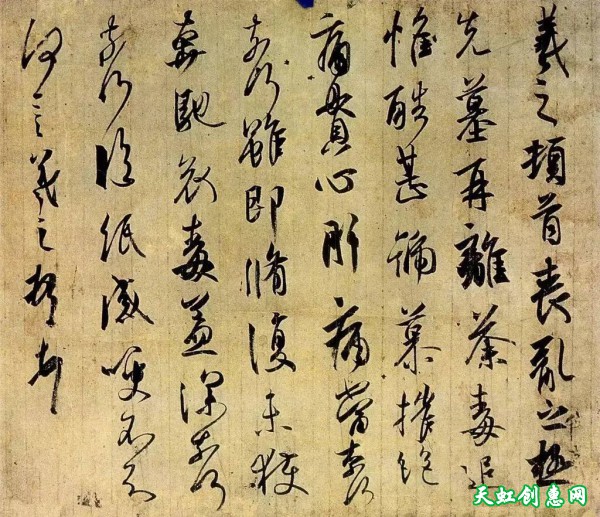 羲之頓首喪亂之極
先墓再離荼毒追
惟酷甚號慕摧絕
痛貫心肝痛當柰何
柰何雖即脩復未獲
奔馳哀毒益深柰何
柰何臨紙感哽不知
何言羲之頓首
天虹创惠网